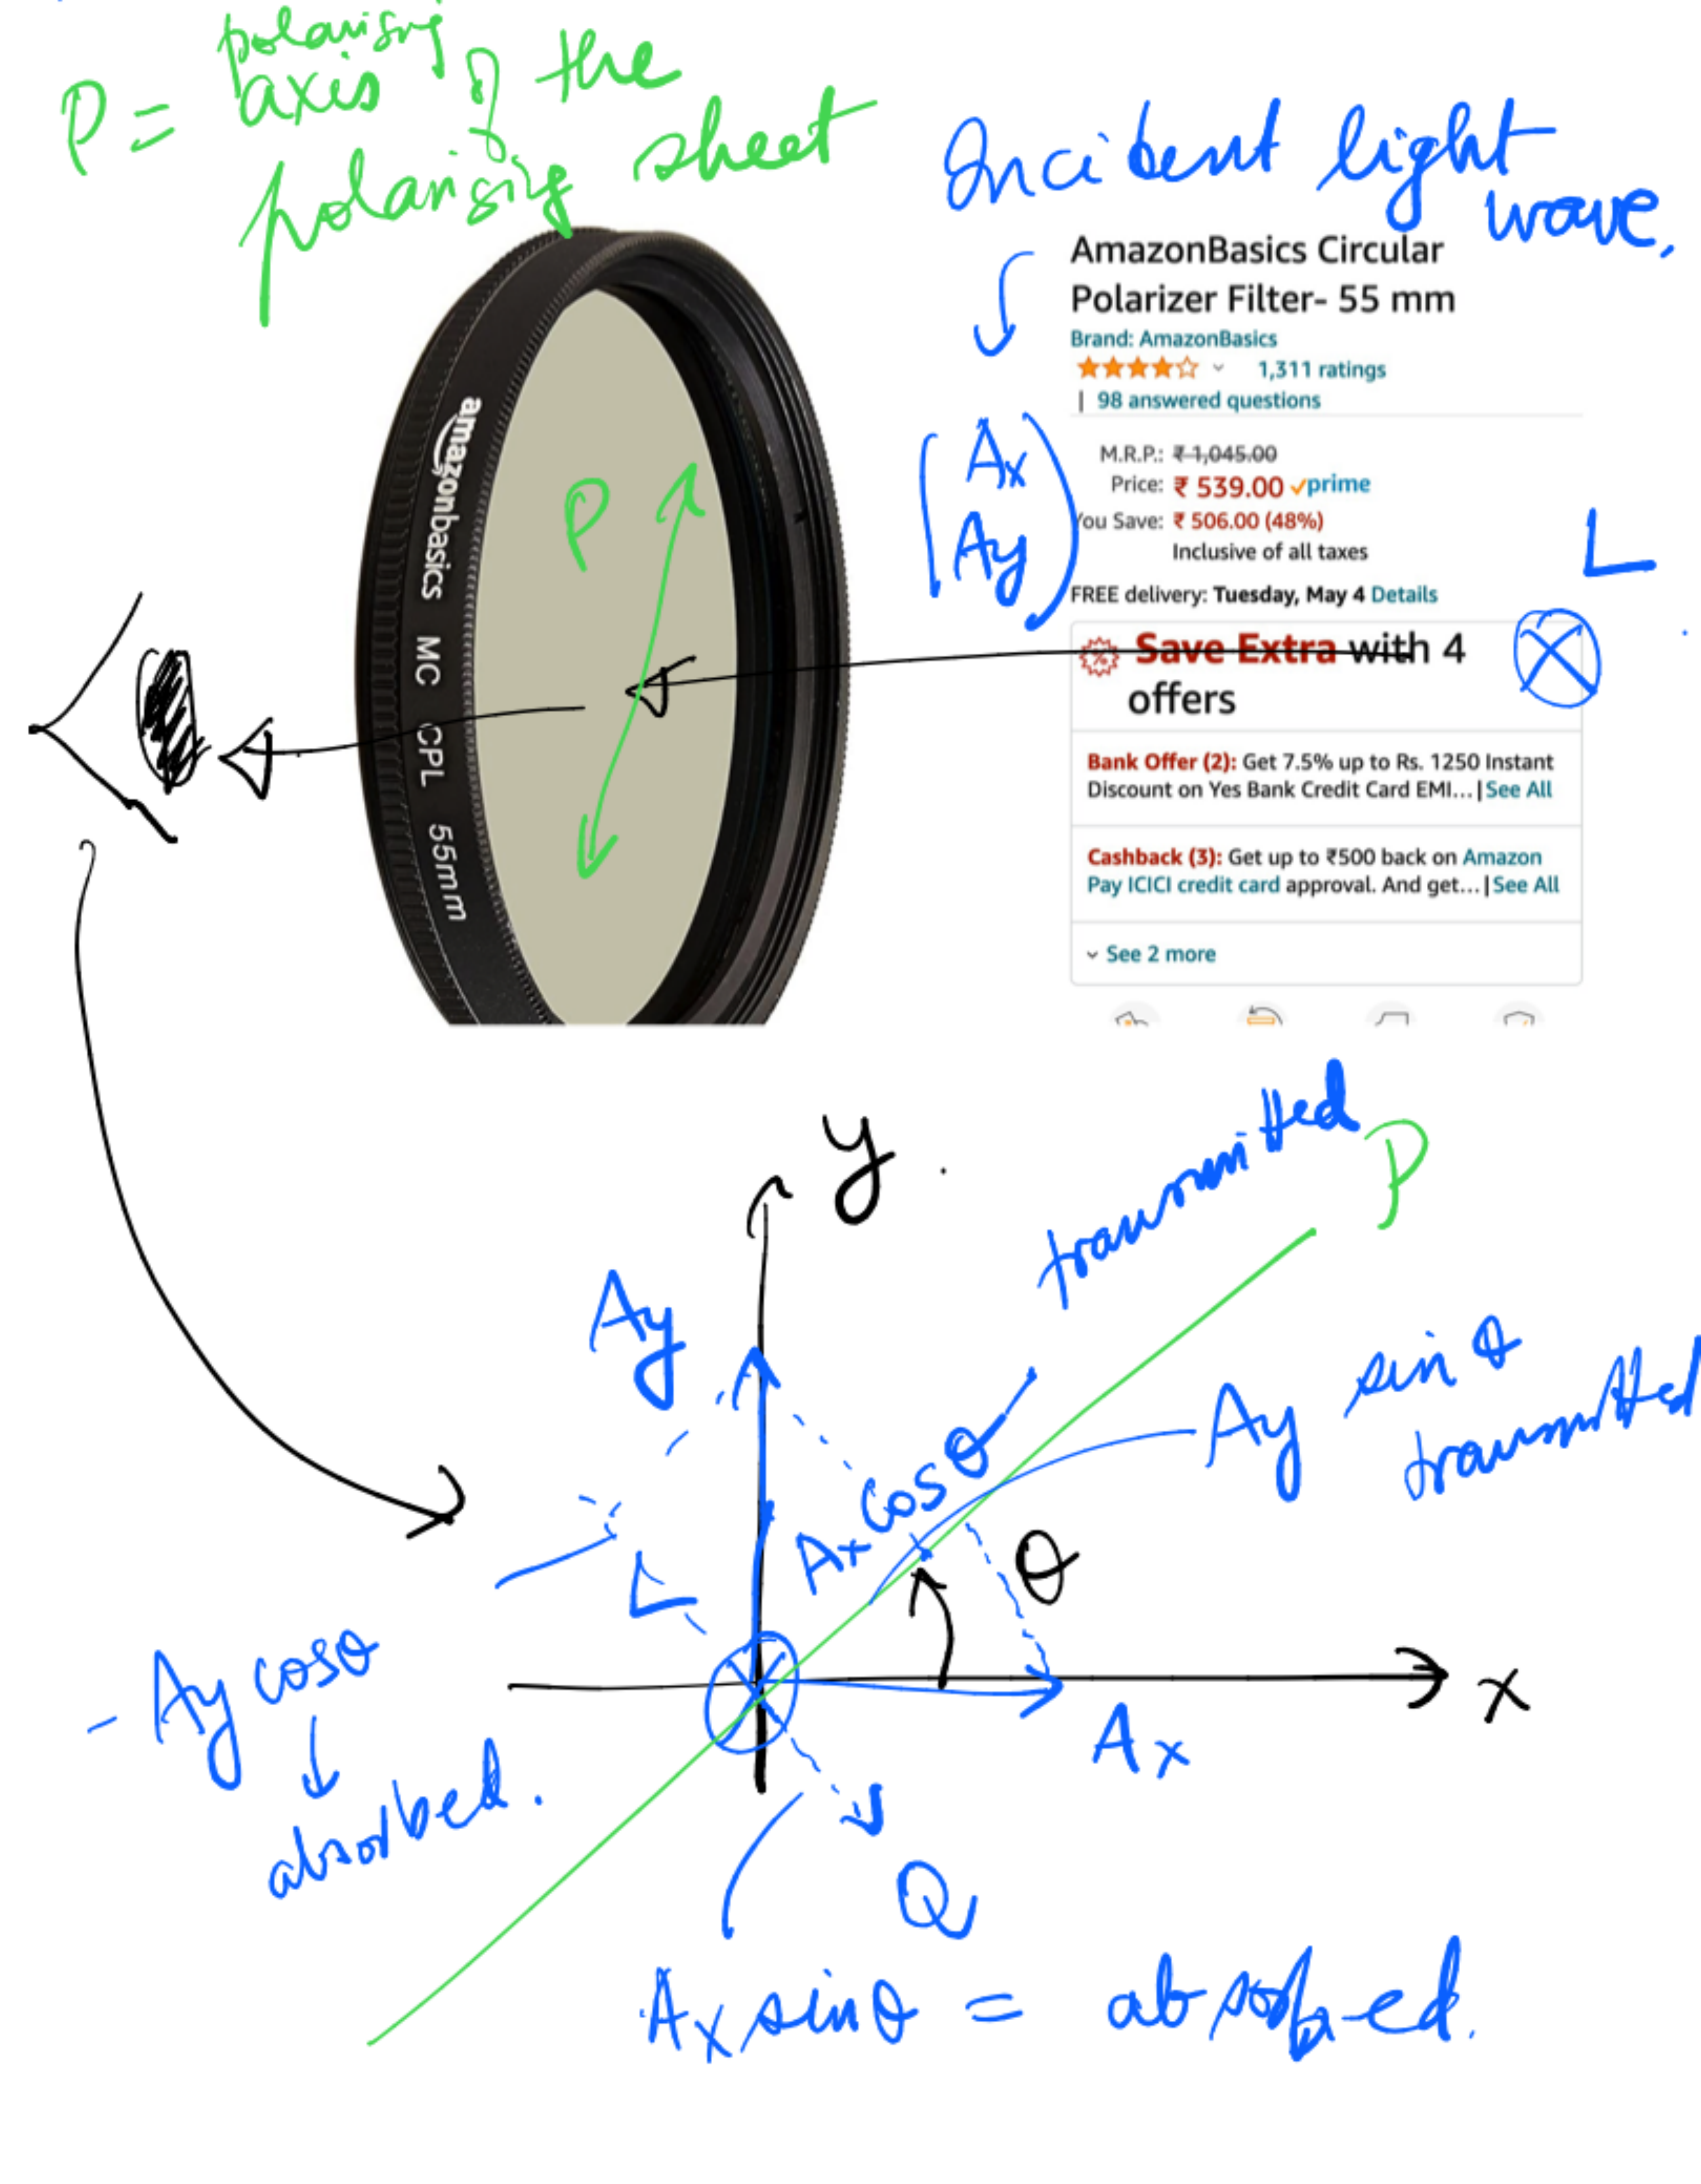 P = polarising
axis of the
polarising sheet
Incident light
wave.
AmazonBasics Circular
Polarizer Filter- 55 mm
Brand: AmazonBasics
1,311 ratings
| 98 answered questions
M.R.P.: ₹ 1,045.00
Price: ₹ 539.00 prime
You Save: ₹ 506.00 (48%)
Inclusive of all taxes
FREE delivery: Tuesday, May 4 Details
Save Extra with 4
offers
Bank Offer (2): Get 7.5% up to Rs. 1250 Instant
Discount on Yes Bank Credit Card EMI...|See All
Cashback (3): Get up to ₹500 back on Amazon
Pay ICICI credit card approval. And get...|See All
See 2 more
Ax
Ay
L
P
amazonbasics MC CPL 55mm
y
transmitted
P
Ay
Ay sin θ
transmitted
Ax cosθ
θ
- Ay cosθ
absorbed.
x
Ax
Q
Ax sinθ = absorbed.